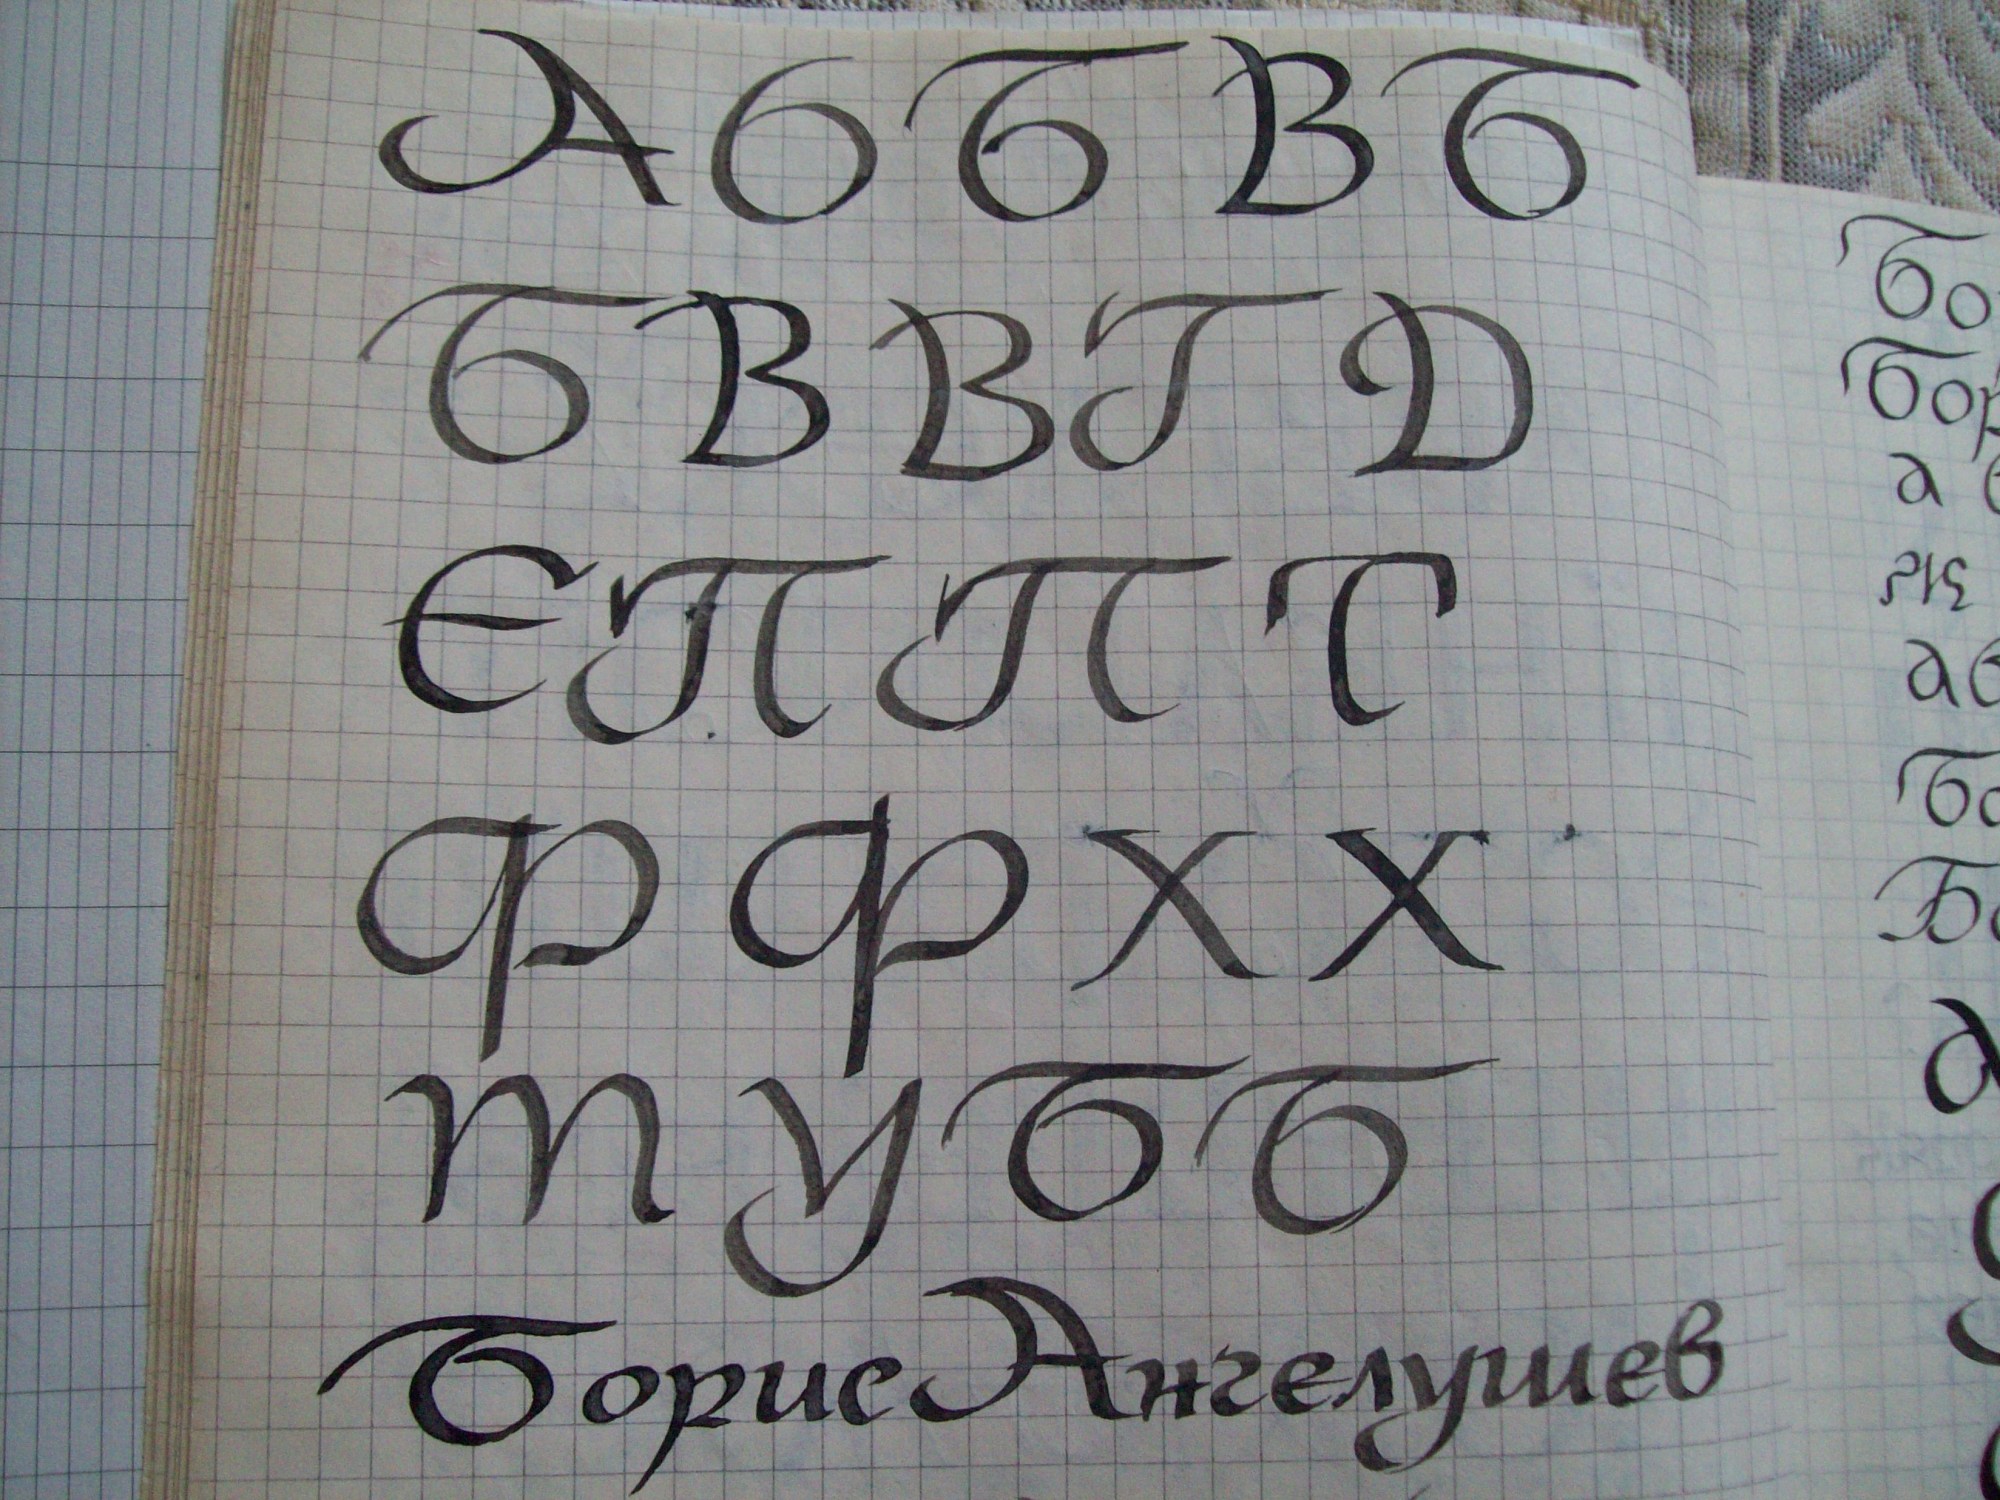 А Б Б В Б
Б В В Г Д
Є П П Т
Ф Ф Х Х
т У Б Б
Борис Ангелушев
Бо
Бор
а
а
Бо
Бо
а